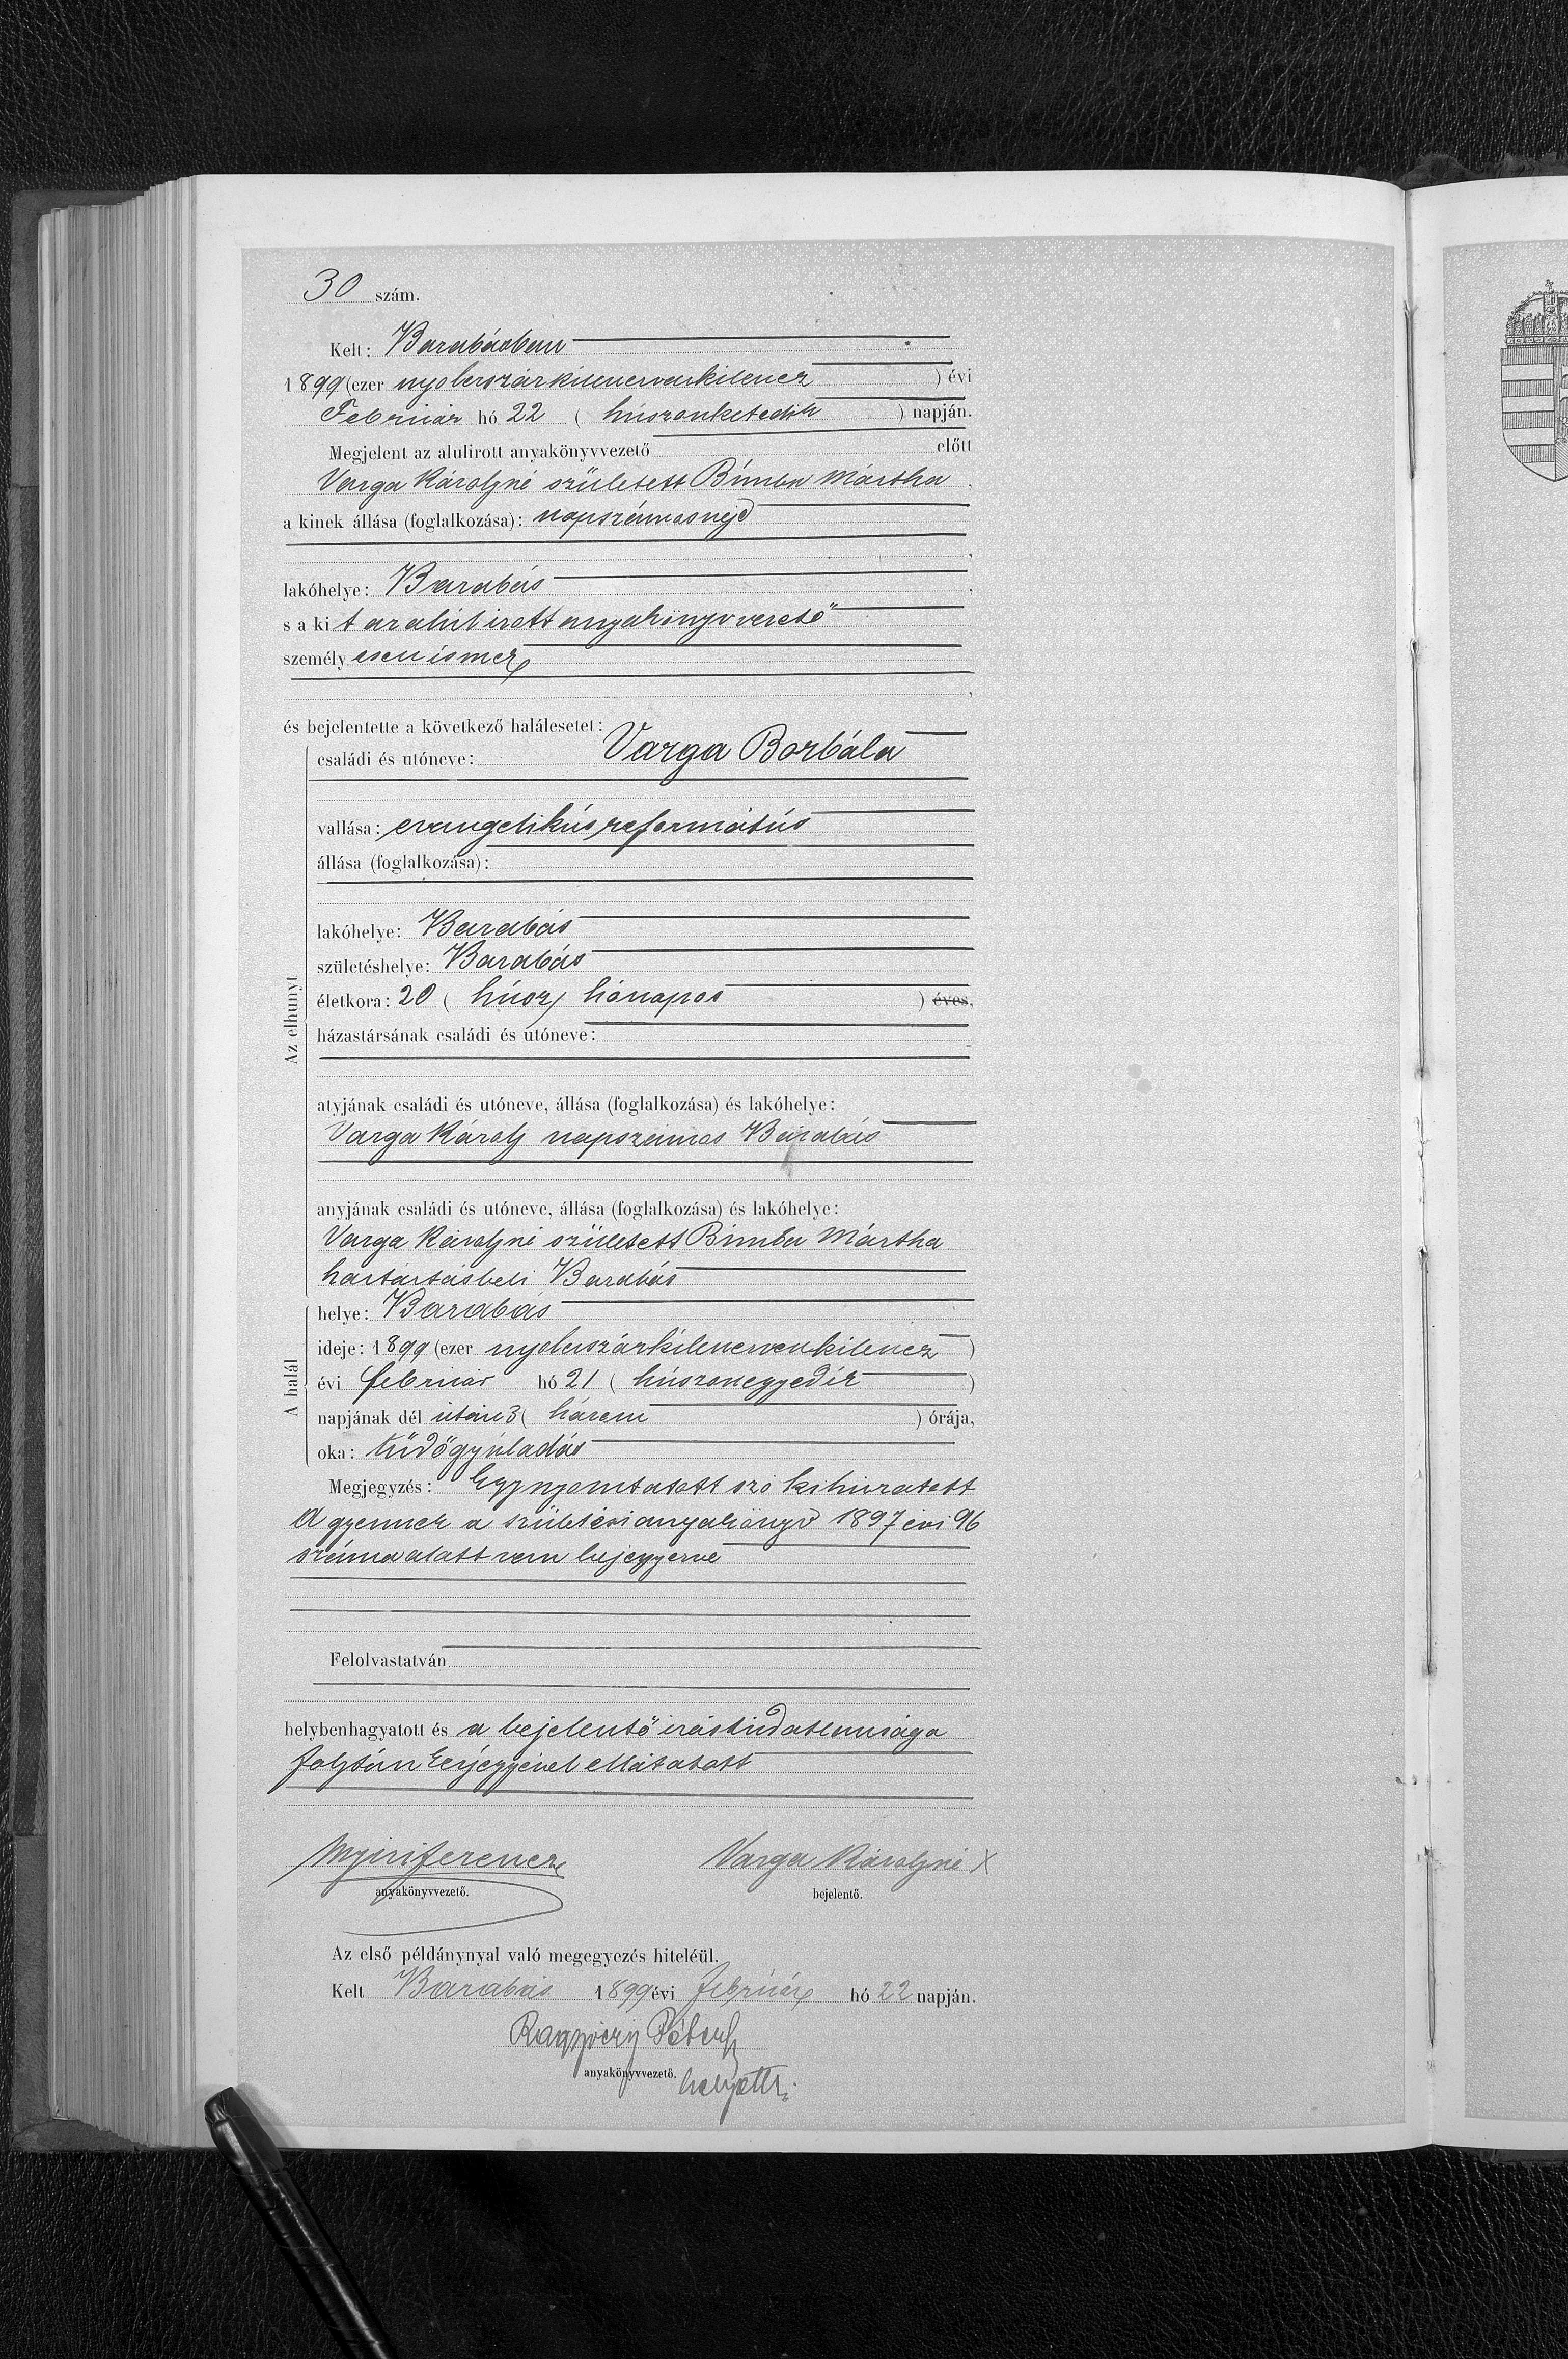 30 szám.
Kelt: Barabásban
1899 (ezer nyolcszázkilencvenkilencz ) évi
Február hó 22 ( húszonketedik ) napján.
Megjelent az alulirott anyakönyvvezető előtt
Varga Károljné született Bimba Mártha
a kinek állása (foglalkozása): napszámosnejé
lakóhelye: Barabás
s a ki t az alúlirott anyakönyvvezető
személy esen ismer,
és bejelentette a következő halálesetet:
Az elhunyt
családi és utóneve: Varga Borbála
vallása: evangelikús református
állása (foglalkozása):
lakóhelye: Barabás
születéshelye: Barabás
életkora: 20 ( húsz) hónapos ) éves,
házastársának családi és utóneve:
atyjának családi és utóneve, állása (foglalkozása) és lakóhelye:
Varga Károlj napszámos Barabás
anyjának családi és utóneve, állása (foglalkozása) és lakóhelye:
Varga Károljné született Bimba Mártha
háztártásbeli Barabás
A halál
helye: Barabás
ideje: 1899 (ezer nyolcszázkilencvenkilencz )
évi február hó 21 ( húszonegyedik )
napjának dél után 3 ( három ) órája,
oka: tüdőgyúladás
Megjegyzés: Egy nyomtatott szó kihúzatott
A gyermek a születési anyakönyv 1897 évi 96
száma alatt van bejegyezve
Felolvastatván
helybenhagyatott és a bejelentő irástúdatlansága
foljtán kézjegyével ellátatott
Nyiri Ferencz
anyakönyvvezető.
Varga Károljné X
bejelentő.
Az első példánynyal való megegyezés hiteléül.
Kelt Barabás 1899 évi február hó 22 napján.
Péter
anyakönyvvezető. helyettes